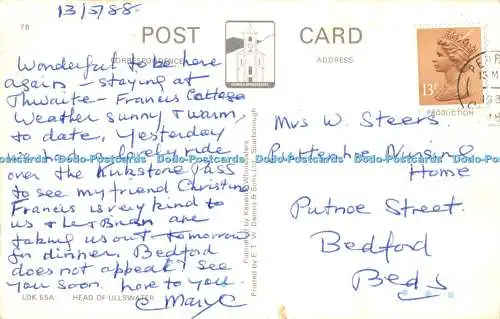 13/5/88.
78
POST CARD
CORRESPONDENCE
ADDRESS
Wonderful to be here
again - staying at
Thwaite - Francis Cottage
Weather sunny & warm,
to date, yesterday
had lovely ride
over the Kirkstone Pass
to see my friend Christine
Francis is very kind to
us & he & Brian are
taking us out tomorrow
for dinner. Bedford
does not appeal! see
you soon. Love to you.
Mary C
LDK 55A HEAD OF ULLSWATER
Printed by E. T. W. Dennis & Sons Ltd. Scarborough
13P
PRODUCTION
Mrs W. Steers
Nursing
Home
Putnoe Street.
Bedford
Beds
Dodo-Postcards Dodo-Postcards Dodo-Postcards Dodo-Postcards Dodo-Postcards Dodo-Postcards